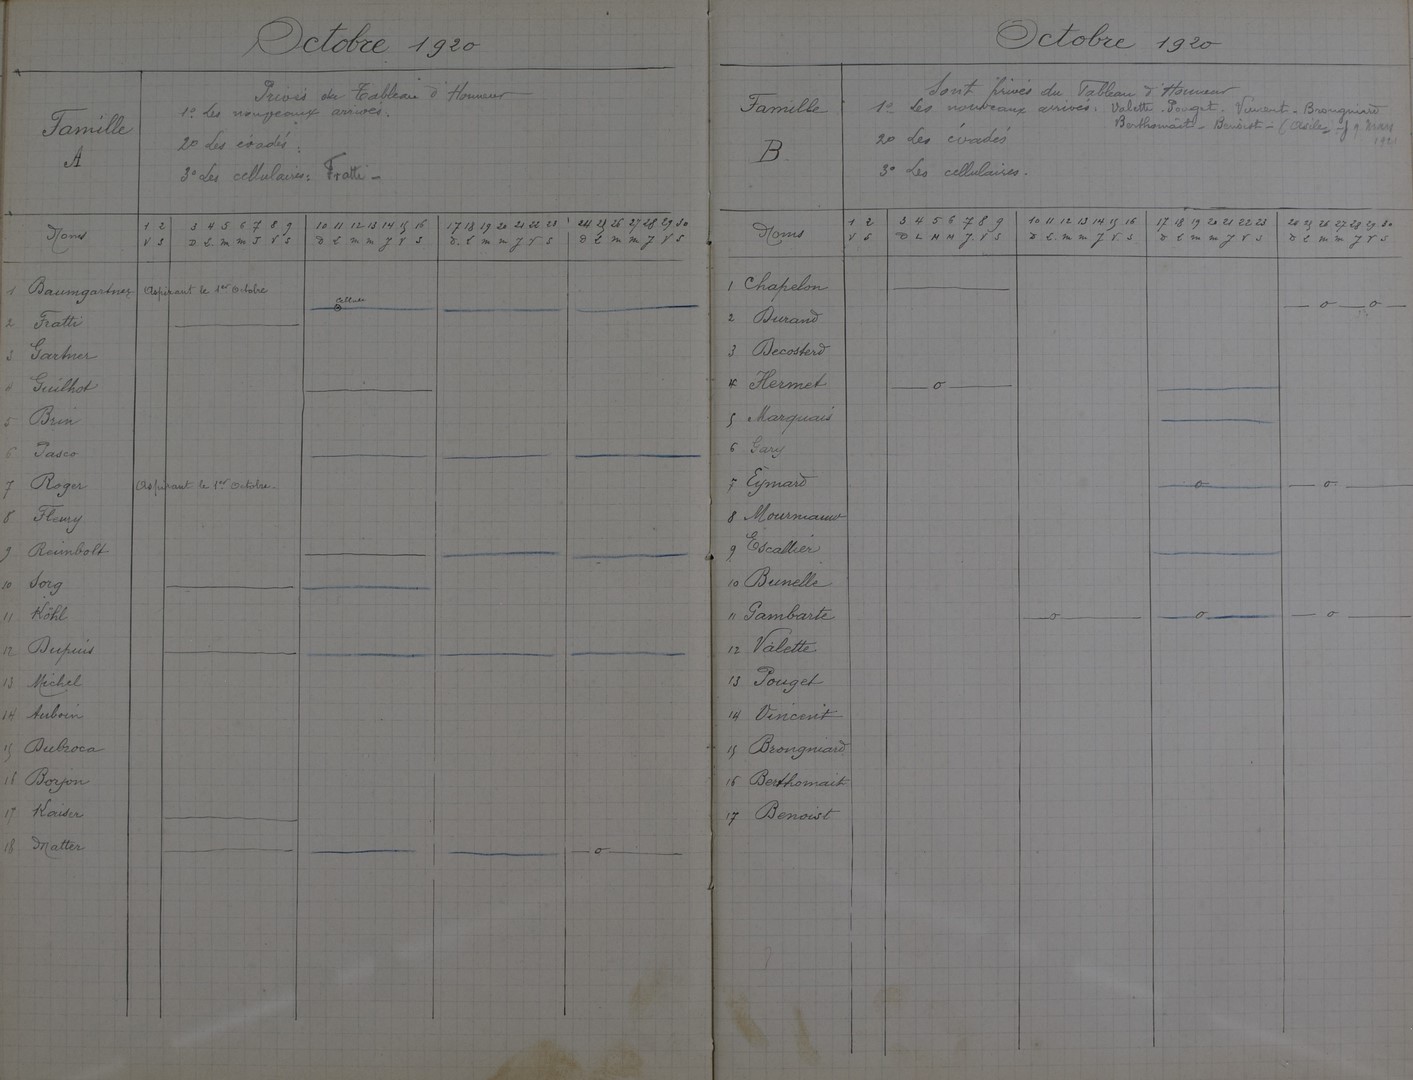 Octobre 1920
Famille A
Privés du Tableau d'Honneur
1º Les nouveaux arrivés.
2º Les évadés :
3º Les cellulaires : Fratti -
Noms
1 2 3 4 5 6 7 8 9 10 11 12 13 14 15 16 17 18 19 20 21 22 23 24 25 26 27 28 29 30
V S D L m m J V S D L m m J V S D L m m J V S D L m m J V S
1 Baumgartner Aspirant le 1er Octobre
2 Fratti
3 Gartner
4 Guilhot
5 Brin
6 Pasco
7 Roger Aspirant le 1er Octobre.
8 Fleury
9 Reimbolt
10 Sorg
11 Köhl
12 Dupuis
13 Michel
14 Auboin
15 Dubroca
16 Borjon
17 Kaiser
18 Matter
Octobre 1920
Famille B
Sont privés du Tableau d'Honneur
1º Les nouveaux arrivés : Valette - Pouget - Vincent - Brongniard
Berthomait - Benoist - (Asile
2º Les évadés
3º Les cellulaires.
Noms
1 2 3 4 5 6 7 8 9 10 11 12 13 14 15 16 17 18 19 20 21 22 23 24 25 26 27 28 29 30
V S D L M M J V S D L m m J V S D L m m J V S D L m m J V S
1 Chapelon
2 Durand
3 Decosterd
4 Hermet
5 Marquais
6 Gary
7 Eymard
8 Mourniaud
9 Escallier
10 Bunelle
11 Gambarte
12 Valette
13 Pouget
14 Vincent
15 Brongniard
16 Berthomait
17 Benoist